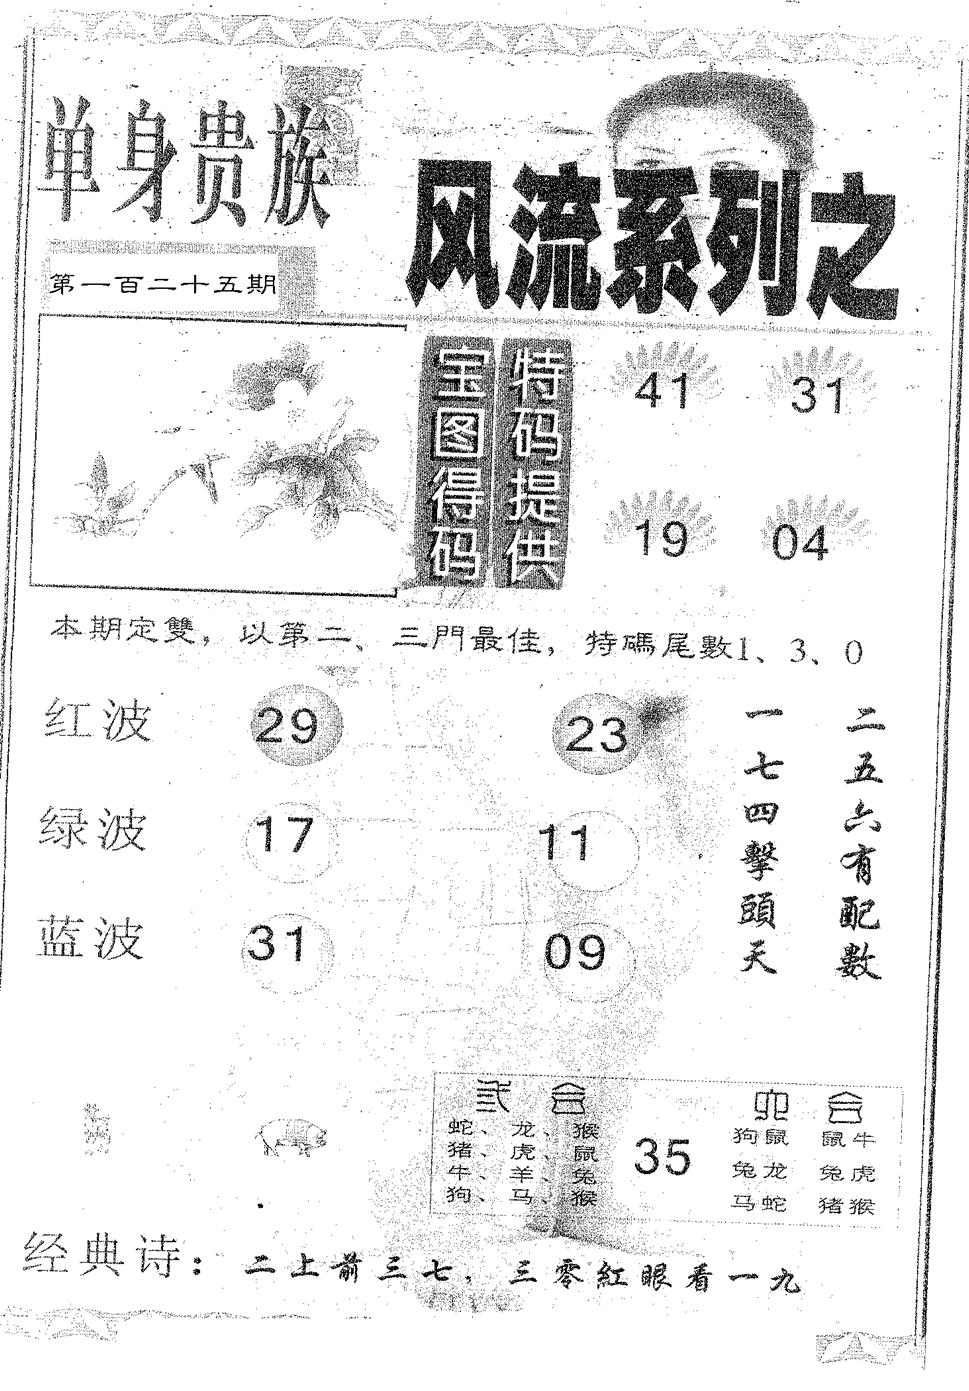 单身贵族
风流系列之
第一百二十五期
宝图得码
特码提供
41 31
19 04
本期定雙，以第二、三門最佳，特碼尾數1、3、0
红波 29 23
绿波 17 11
蓝波 31 09
二五六有配數
一七四擊頭天
合
蛇、龙、猴
猪、虎、鼠
牛、羊、兔
狗、马、猴
35
六合
狗鼠 鼠牛
兔龙 兔虎
马蛇 猪猴
经典诗：二上前三七，三零紅眼看一九